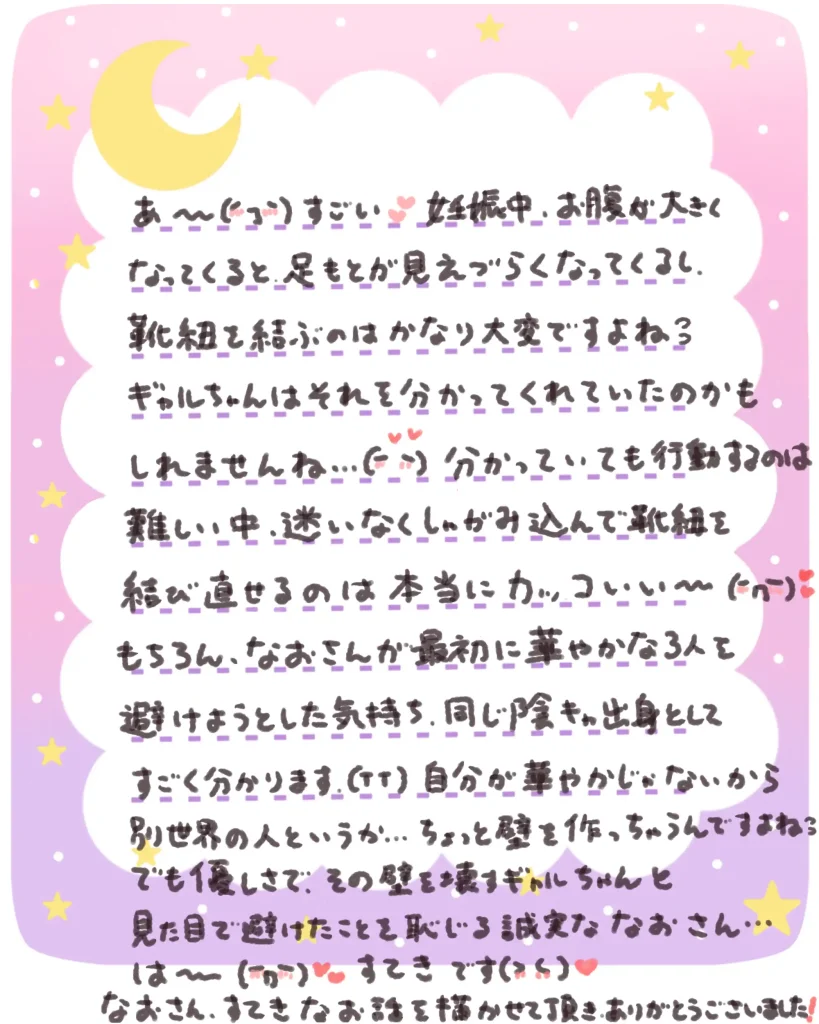 あ〜(´꒳`)すごい💕妊娠中、お腹が大きく
なってくると、足もとが見えづらくなってくるし、
靴紐を結ぶのはかなり大変ですよね?
ギャルちゃんはそれを分かってくれていたのかも
しれませんね…(´`) 分かっていても行動するのは
難しい中、迷いなくしゃがみ込んで靴紐を
結び直せるのは本当にカッコいい〜(´ก`)❣
もちろん、なおさんが最初に華やかな3人を
避けようとした気持ち、同じ陰キャ出身として
すごく分かります。(TT)自分が華やかじゃないから
別世界の人というか…ちょっと壁を作っちゃうんですよね?
でも優しさで、その壁を壊すギャルちゃんと
見た目で避けたことを恥じる誠実ななおさん…
は〜〜(´ก`)💕すてきです(><)❤
なおさん、すてきなお話を描かせて頂き、ありがとうございました!